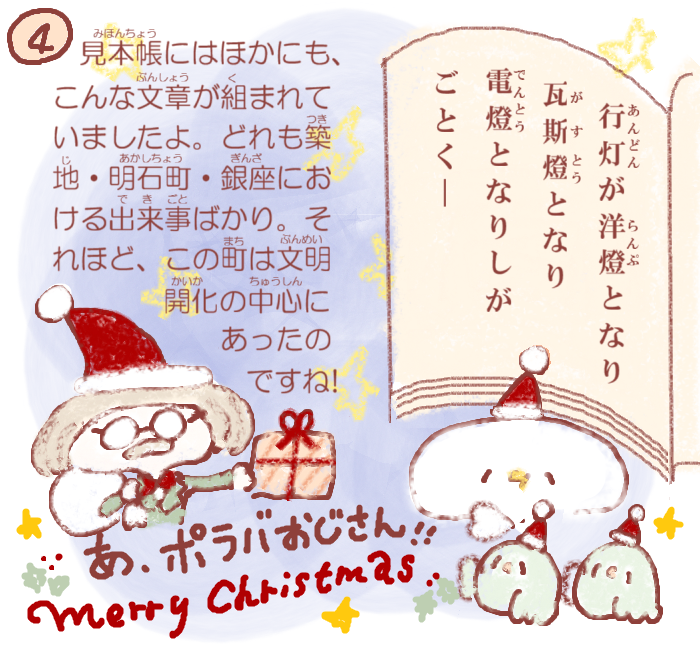 4
見本帳にはほかにも、
こんな文章が組まれて
いましたよ。どれも築
地・明石町・銀座にお
ける出来事ばかり。そ
れほど、この町は文明
開化の中心に
あったの
ですね!
行灯が洋燈となり
瓦斯燈となり
電燈となりしが
ごとく―
あ、ポラバおじさん!!
merry christmas